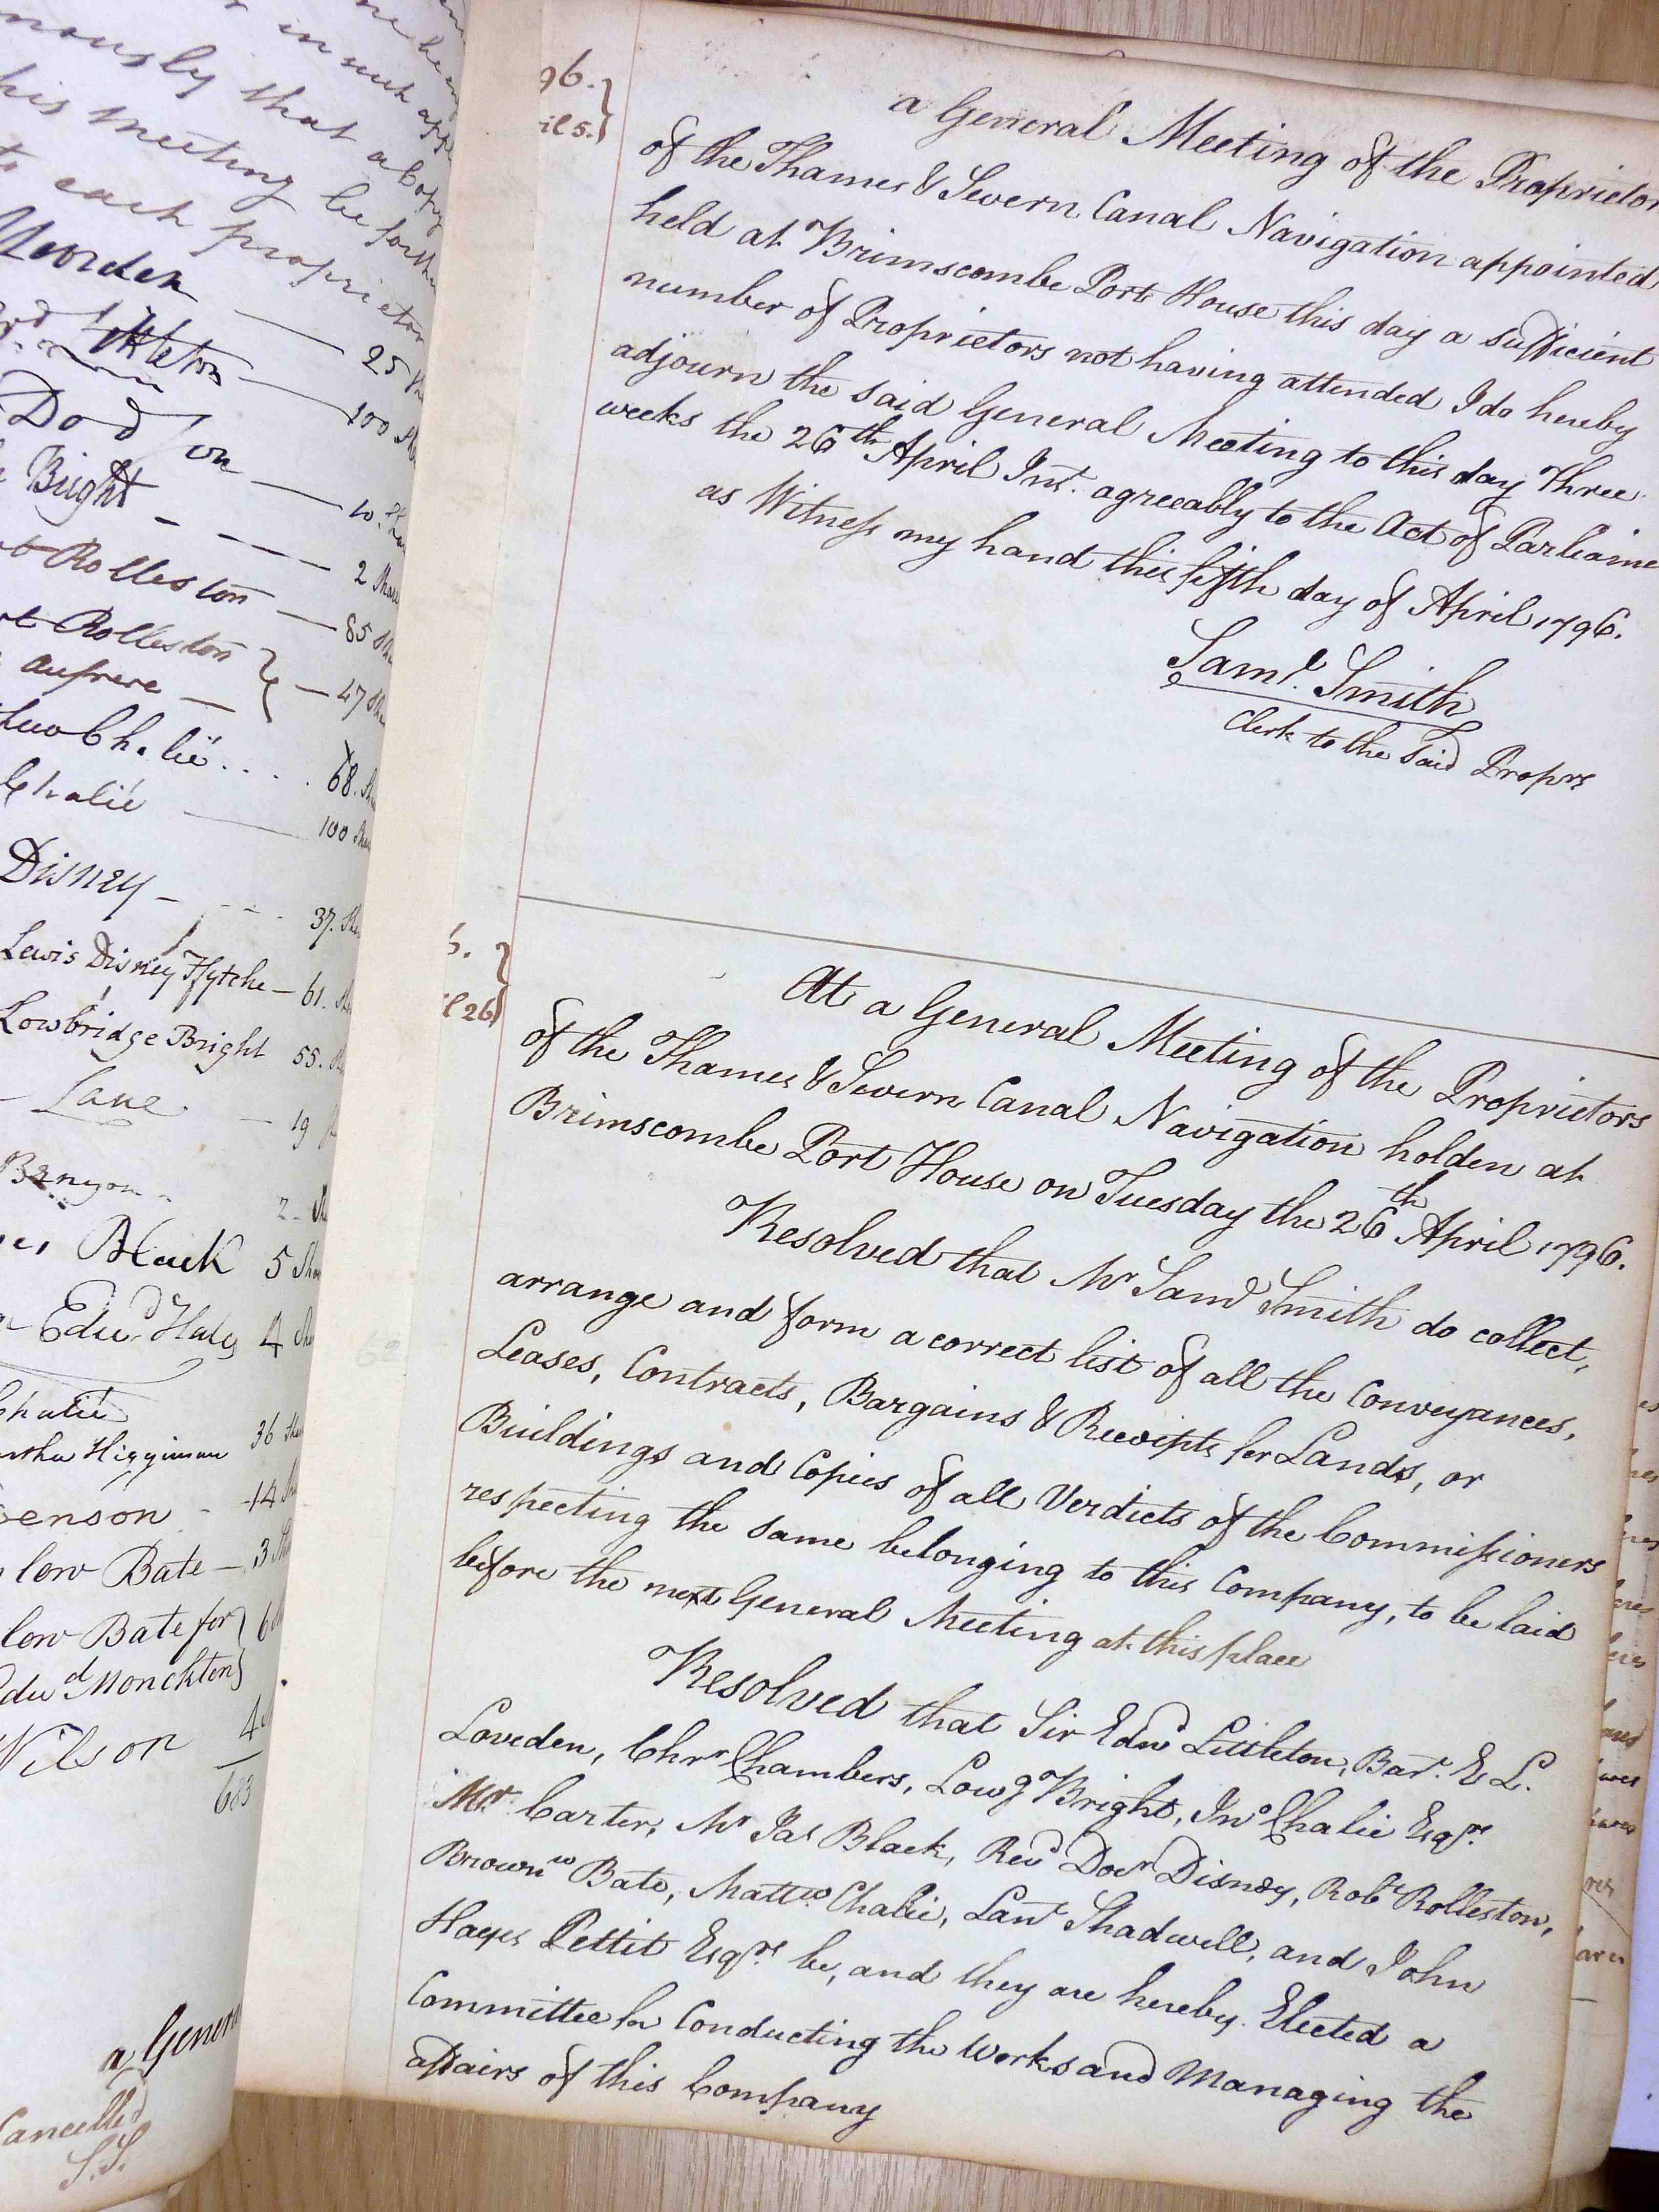 in such
nously that a Copy
his meeting be forth
to each proprietor
25
100
Dodson
10.
Bright - - - - 2 Share
Rolleston — 85
Rolleston
Aufrere — } — 47
Chalié . . . . 68.
Chalié — 100
Disney - - - - 37.
Lewis Disney Ffytche — 61.
Lowbridge Bright 55.
Lane — 19
2
Black 5
Edwd. Hale 4
Chalié
Higginson 36
enson - 14
low Bate — 3
low Bate for } 6
Edwd Monckton
Wilson 4
683
a General
Cancelled
S.S.
96. }
il 5.
a General Meeting of the Proprietor
of the Thames & Severn Canal Navigation appointed
held at Brimscombe Port House this day a sufficient
number of Proprietors not having attended I do hereby
adjourn the said General Meeting to this day Three
weeks the 26th April Inst. agreeably to the Act of Parliame
as Witness my hand this fifth day of April 1796.
Saml. Smith
Clerk to the said Proprs
6. }
il 26
At a General Meeting of the Proprietors
of the Thames & Severn Canal Navigation holden at
Brimscombe Port House on Tuesday the 26th April 1796.
Resolved that Mr Saml Smith do collect,
arrange and form a correct list of all the Conveyances,
Leases, Contracts, Bargains & Receipts for Lands, or
Buildings and Copies of all Verdicts of the Commissioners
respecting the same belonging to this Company, to be laid
before the next General Meeting at this place
Resolved that Sir Edwd Littleton, Bart. E L.
Loveden, Chrr Chambers, Lowg Bright, Jno Chalie Esqrs.
Mr. Carter, Mr Jas Black, Revd Docr Disney, Robt Rolleston,
Brownw Bate, Mattw Chalie, Lant Shadwell, and John
Hayes Pettit Esqrs. be, and they are hereby Elected a
Committee for Conducting the Works and Managing the
affairs of this Company